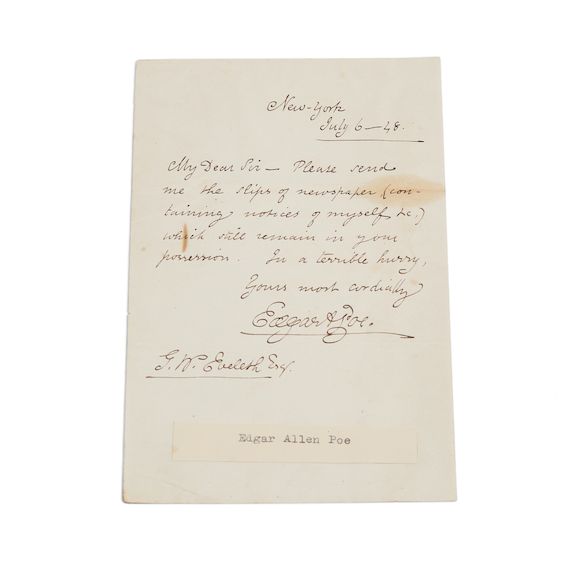 New-York
July 6 — 48.
My Dear Sir — Please send
me the slips of newspaper, (con-
taining notices of myself &c.)
which still remain in your
possession. In a terrible hurry,
Yours most cordially
Edgar A Poe.
G. W. Eveleth Esq.
Edgar Allen Poe